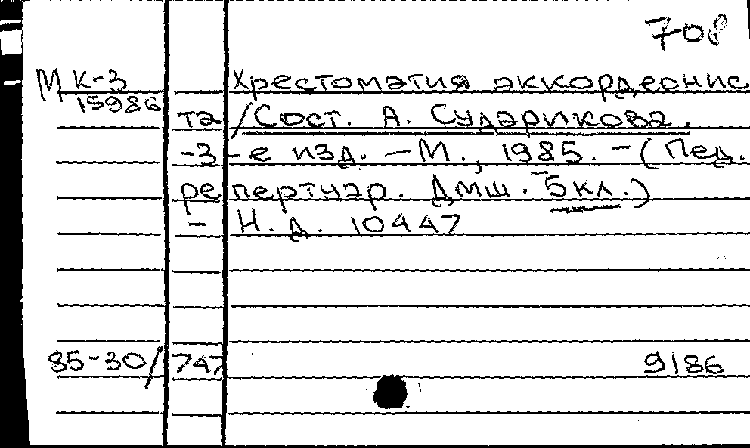 708
М К-3 Хрестоматия аккордеонис
15986 та /Сост. А. Судариkова.
-3-е изд. - М., 1985. - (Пед.
репертуар. Дмш. 5кл.)
- Н. д. 10447
85-30/747 9186